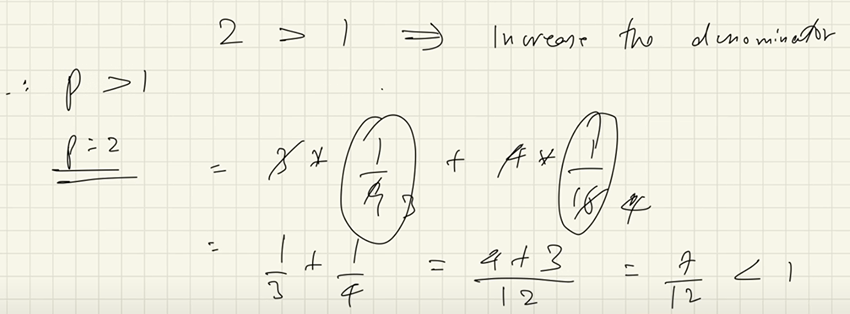 2 > 1 ⇒ Increase the denominator
∴ p > 1
p = 2 = 3 * 1/9 3 + 4 * 1/16 4
= 1/3 + 1/4 = 4+3/12 = 7/12 < 1